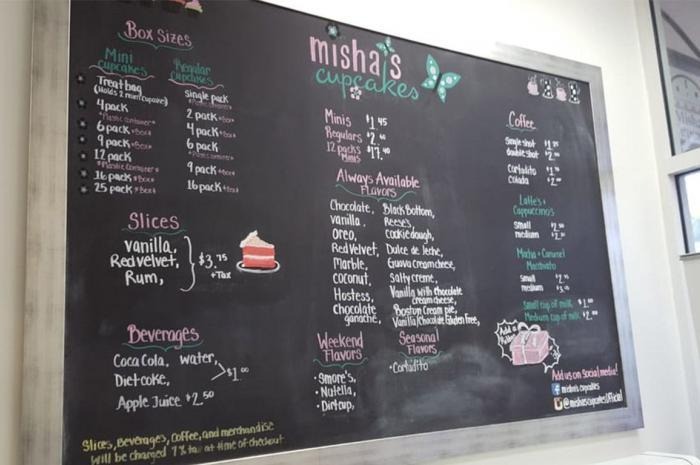 Box Sizes
Mini
cupcakes
Treat bag
(Holds 2 mini cupcakes)
4 pack
*Plastic container*
6 pack *Box*
9 pack *Box*
12 pack
*Plastic Container*
16 pack *Box*
25 pack *Box*
Regular
cupcakes
single pack
2 pack
4 pack
6 pack
9 pack
16 pack
Slices
vanilla,
Red velvet,
Rum,
$3.75
+Tax
Beverages
Coca Cola, water,
Diet-coke,
$1.00
Apple Juice $2.50
Slices, Beverages, Coffee, and merchandise
will be charged 7% tax at time of checkout
misha's
cupcakes
Minis $1.45
Regulars
12 packs
Minis
Always Available
Flavors
Chocolate,
vanilla,
Oreo,
Red Velvet,
Marble,
coconut,
Hostess,
Chocolate
ganache,
Black Bottom,
Reese's,
cookie dough,
Dulce de leche,
Guava Cream cheese,
Salty creme,
Vanilla with chocolate
cream cheese,
Boston Cream pie,
Vanilla/Chocolate Gluten Free,
Weekend
Flavors
• Smore's,
• Nutella,
• Dirt cup,
Seasonal
Flavors
• Cortadito
Coffee
Single shot
double shot
Cortadito
colada
Latte's +
Cappuccino's
Small
medium
Mocha + Caramel
Macchiato
Small
medium
Small cup of milk
Medium cup of milk
Add us on Social media!
misha's cupcakes
@mishascupcakesofficial